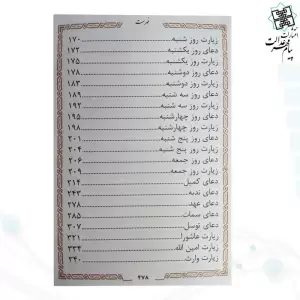 فهرست
زیارت روز شنبه ۱۷۰
دعای روز یکشنبه ۱۷۲
زیارت روز یکشنبه ۱۷۵
دعای روز دوشنبه ۱۷۸
زیارت روز دوشنبه ۱۸۳
دعای روز سه شنبه ۱۸۹
زیارت روز سه شنبه ۱۹۲
دعای روز چهارشنبه ۱۹۵
زیارت روز چهارشنبه ۱۹۸
دعای روز پنج شنبه ۲۰۱
زیارت روز پنج شنبه ۲۰۴
دعای روز جمعه ۲۰۶
زیارت روز جمعه ۲۰۹
دعای کمیل ۲۱۴
دعای ندبه ۲۴۳
دعای عهد ۲۷۸
دعای سمات ۲۸۵
دعای توسل ۳۰۷
زیارت عاشورا ۳۲۱
زیارت امین الله ۳۳۴
زیارت وارث ۳۴۰
۴۷۸
انتشارات
پیام عدالت